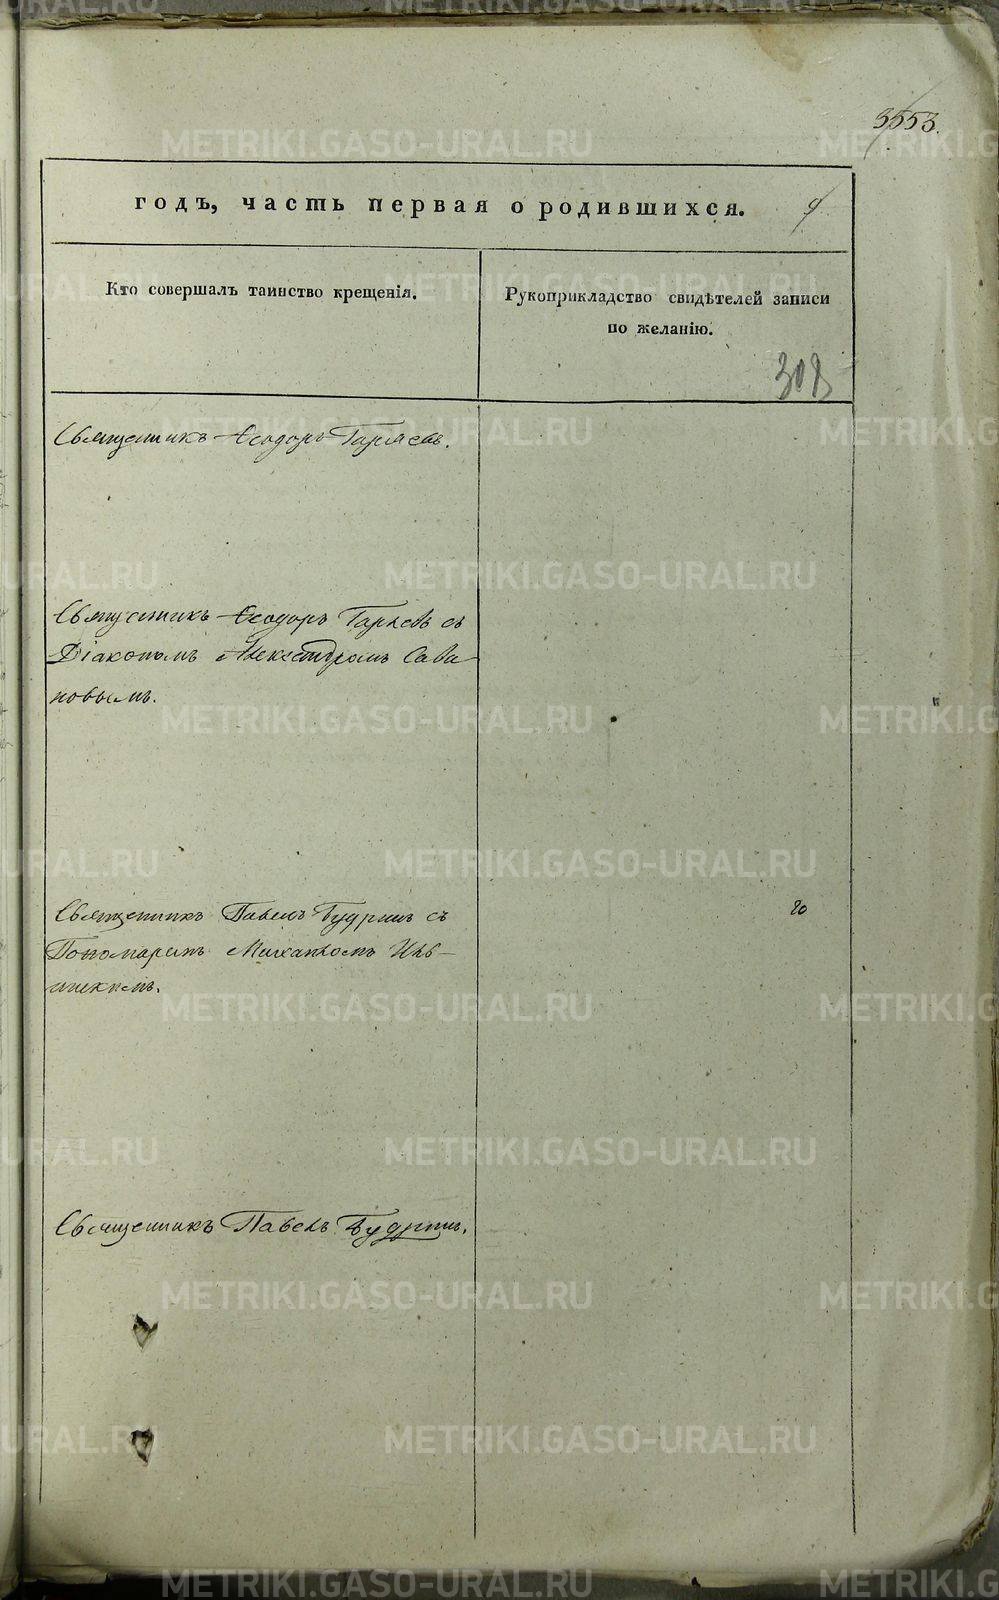 3553.
годъ, часть первая о родившихся. 9
Кто совершалъ таинство крещенія.
Рукоприкладство свидѣтелей записи
по желанію.
308
Священникъ Ѳеодоръ Гаряевъ.
Священникъ Ѳеодоръ Гаряевъ съ
Діакономъ Александромъ Сава-
новымъ.
Священникъ Павелъ Будринъ съ
Пономаремъ Михаиломъ
20
Священникъ Павелъ Будринъ.
METRIKI.GASO-URAL.RU